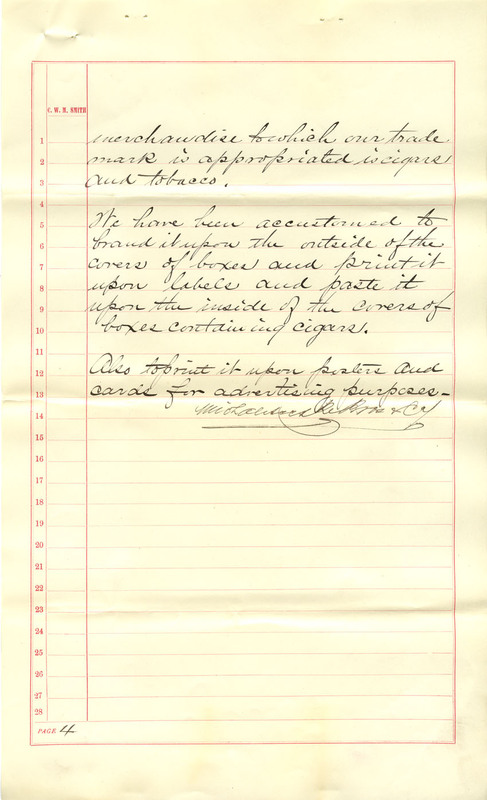 C. W. M. SMITH
1 merchandise to which our trade
2 mark is appropriated is cigars
3 and tobacco.
4
5 We have been accustomed to
6 brand it upon the outside of the
7 covers of boxes and print it
8 upon labels and paste it
9 upon the inside of the covers of
10 boxes containing cigars.
11
12 Also to print it upon posters and
13 cards for advertising purposes—
14 Bros & Co
15
16
17
18
19
20
21
22
23
24
25
26
27
28
PAGE 4